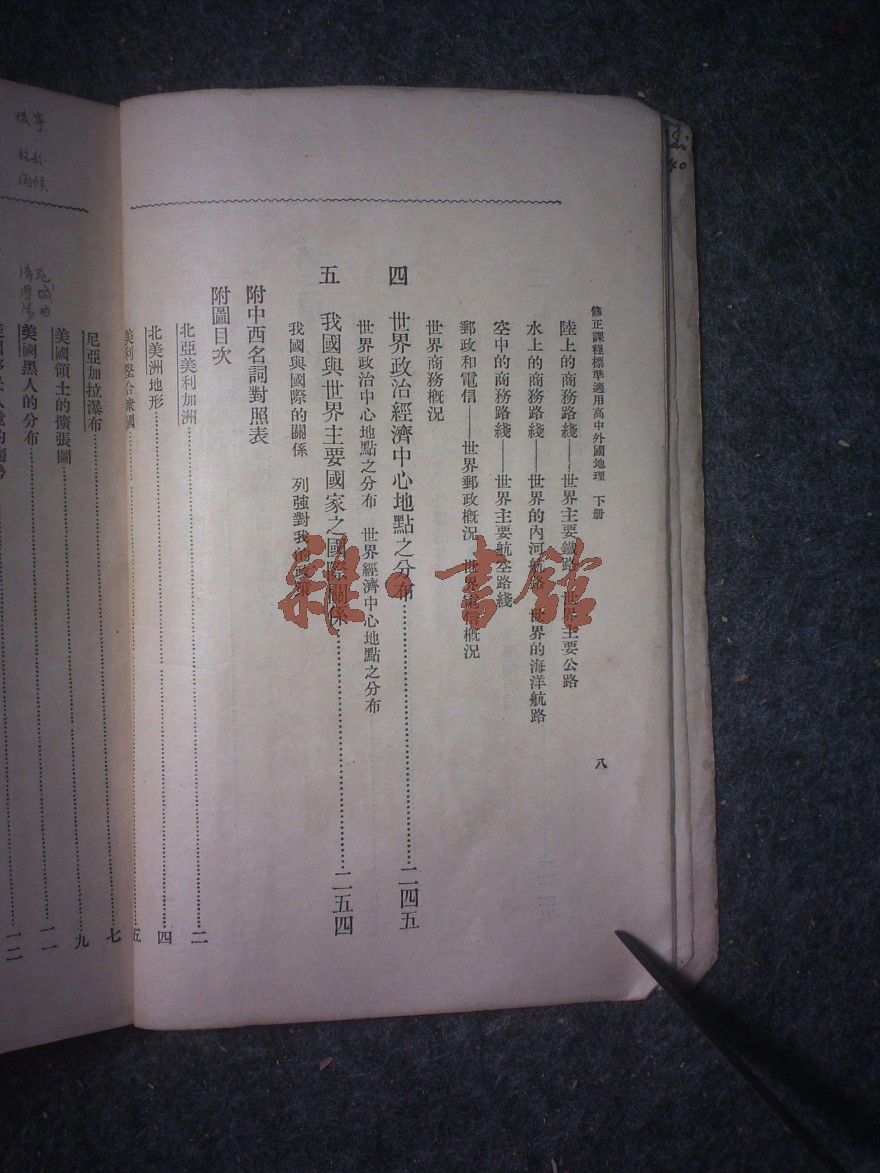 修正課程標準適用高中外國地理　下册
八
陸上的商務路綫——世界主要鐵路　世界主要公路
水上的商務路綫——世界的內河航路　世界的海洋航路
空中的商務路綫——世界主要航空路綫
郵政和電信——世界郵政槪況　世界電信槪況
世界商務槪況
四　世界政治經濟中心地點之分布……二四五
世界政治中心地點之分布　世界經濟中心地點之分布
五　我國與世界主要國家之國際關係……二五四
我國與國際的關係　列強對我的政策
附中西名詞對照表
附圖目次
北亞美利加洲……二
北美洲地形……四
美利堅合衆國……五
尼亞加拉瀑布……七
美國領土的擴張圖……九
美國黑人的分布……一一
一二
雜·書館